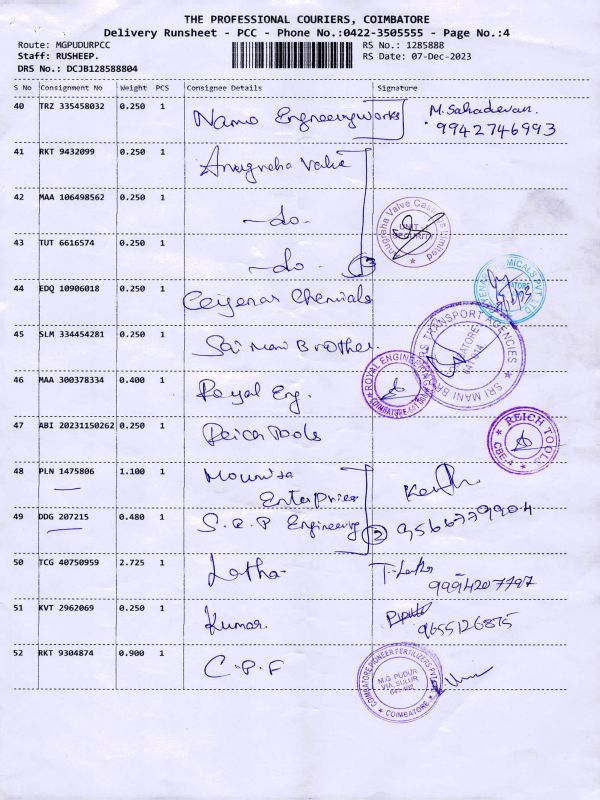 THE PROFESSIONAL COURIERS, COIMBATORE
Delivery Runsheet - PCC - Phone No.:0422-3505555 - Page No.:4
Route: MGPUDURPCC
RS No.: 1285888
Staff: RUSHEEP.
RS Date: 07-Dec-2023
DRS No.: DCJB128588804
S No Consignment No Weight PCS Consignee Details Signature
40 TRZ 335458032 0.250 1 Namo Engineering Works M. Sahadevan.
9942746993
41 RKT 9432099 0.250 1 Anugraha Valve
42 MAA 106498562 0.250 1 -do-
Anugraha Valve Castings Limited
UNIT
SECURITY
43 TUT 6616574 0.250 1 -do- 3
44 EDQ 10906018 0.250 1 Ceiyenar Chemicals
45 SLM 334454281 0.250 1 Sai Mani Brother.
SRI MANI BROTHERS TRANSPORT AGENCIES
COIMBATORE
641 014
46 MAA 300378334 0.400 1 Royal Eng.
ROYAL ENGINEERING
47 ABI 20231150262 0.250 1 Reich Tools
REICH TOOLS
CBE-4
48 PLN 1475806 1.100 1 Mounisa
Enterprises
49 DDG 207215 0.480 1 S.R.P Engineering 2 9566779904
50 TCG 40750959 2.725 1 Latha- T. Latha
9994207797
51 KVT 2962069 0.250 1 Kumar.
9655126875
52 RKT 9304874 0.900 1 C.P.F
COIMBATORE PIONEER FERTILIZERS PVT LTD
M.G. PUDUR
VIA, SULUR
641-402
COIMBATORE